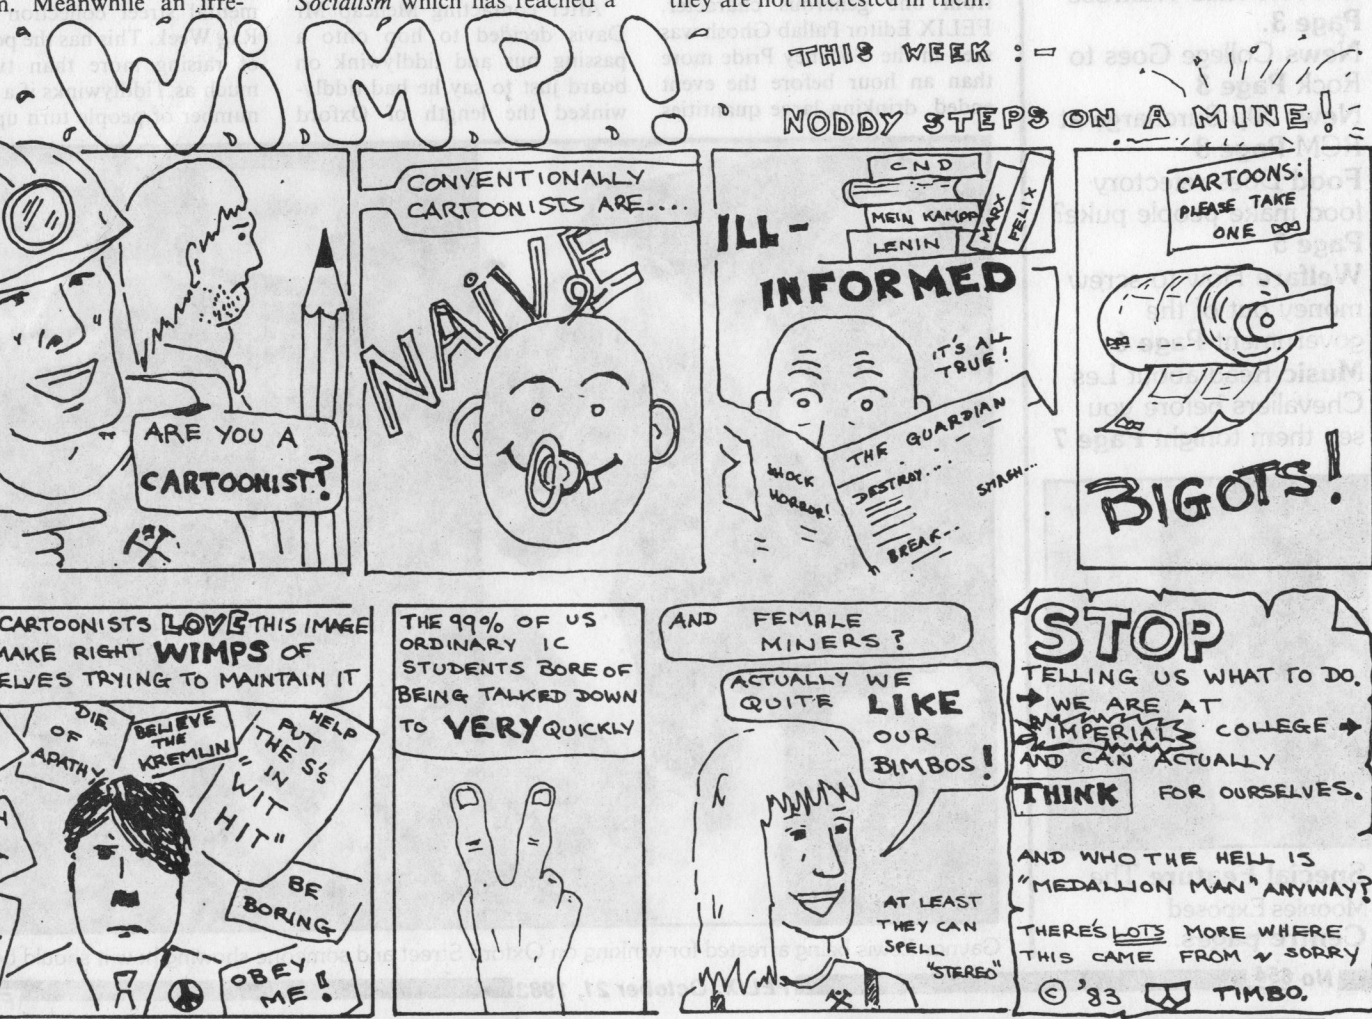 n. Meanwhile an irre-
Socialism which has reached a
they are not interested in them.
WIMPL
THIS WEEK :-
NODDY STEPS ON A MINE!
ARE YOU A
CARTOONIST?
CONVENTIONALLY
CARTOONISTS ARE...
NAÏVE
ILL-
INFORMED
CND
MEIN KAMPF
LENIN
MARX
FELIX
IT'S ALL
TRUE!
THE GUARDIAN
SHOCK
HORROR!
DESTROY...
SMASH...
BREAK
CARTOONS:
PLEASE TAKE
ONE
BIGOTS!
CARTOONISTS LOVE THIS IMAGE
MAKE RIGHT WIMPS OF
ELVES TRYING TO MAINTAIN IT
DIE
OF
APATHY
BELIEVE
THE
KREMLIN
HELP
PUT
THE S'S
"IN
WIT
HIT"
BE
BORING
OBEY
ME!
THE 99% OF US
ORDINARY IC
STUDENTS BORE OF
BEING TALKED DOWN
TO VERY QUICKLY
AND FEMALE
MINERS?
ACTUALLY WE
QUITE LIKE
OUR
BIMBOS!
AT LEAST
THEY CAN
SPELL
'STEREO'.
STOP
TELLING US WHAT TO DO.
WE ARE AT
IMPERIAL COLLEGE
AND CAN ACTUALLY
THINK FOR OURSELVES.
AND WHO THE HELL IS
"MEDALLION MAN" ANYWAY?
THERE'S LOTS MORE WHERE
THIS CAME FROM ~ SORRY
© '83 TIMBO.